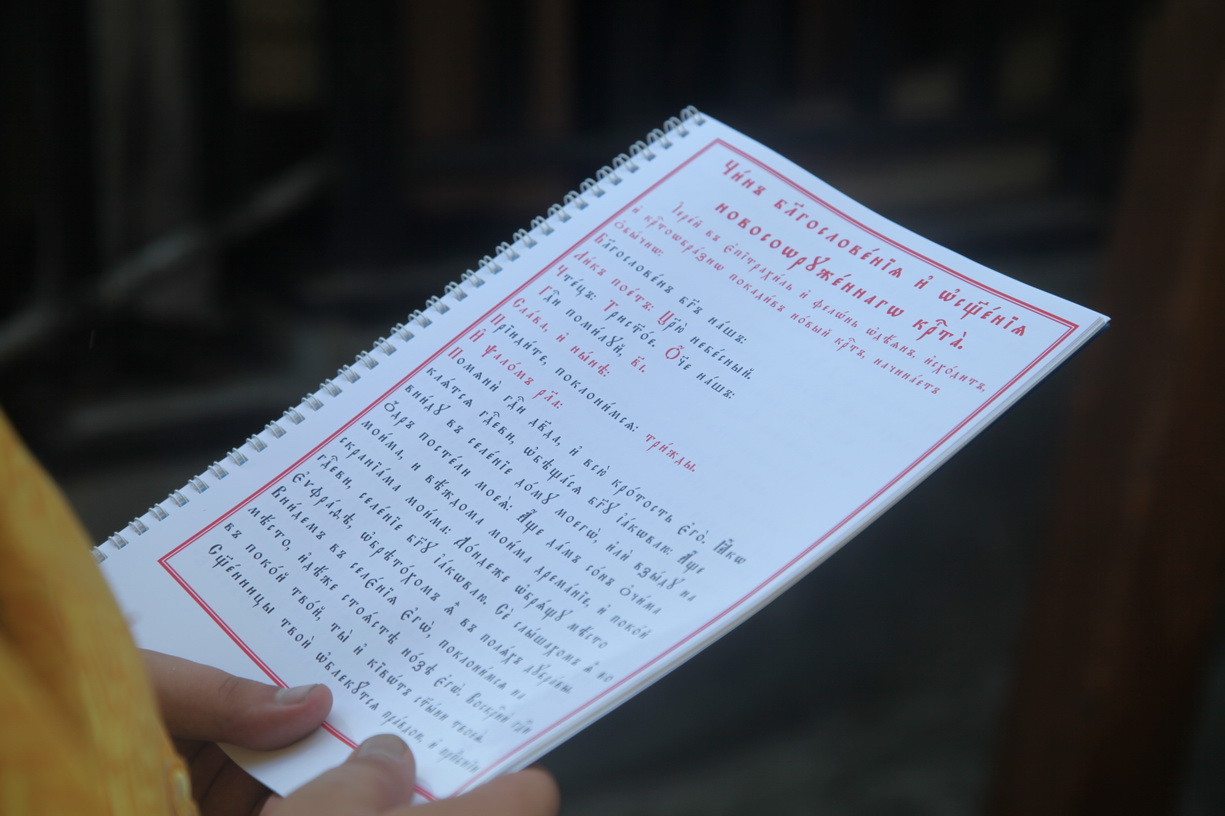 Чи́нъ бл҃гослове́нїѧ и҆ ѡ҆сщ҃е́нїѧ
новосоѡрꙋже́ннагѡ кр҇та̀.
І҆ере́й въ є҆пїтрахи́ль и҆ фело́нь ѡ҆дѣ́ѧнъ, и҆схо́дитъ,
и҆ кр҇тоѡбра́знѡ покади́въ но́вый кр҇тъ, начина́етъ
ѻ҆бы́чнѡ:
Бл҃гослове́нъ бг҃ъ на́шъ:
Ли́къ пое́тъ: Цр҃ю̀ небе́сный.
Чте́цъ: Трист҃о́е. Ѻ҆́ч҃е на́шъ:
Гдⷭ҇и поми́лꙋй, в҃і.
Сла́ва, и҆ ны́нѣ:
Прїиди́те, поклони́мсѧ: три́жды.
И҆ Ѱало́мъ рл҃а:
Помѧнѝ гдⷭ҇и дв҃да, и҆ всю̀ кро́тость є҆гѡ̀. Ꙗ҆́кѡ
клѧ́тсѧ гдⷭ҇еви, ѡ҆бѣща́сѧ бг҃ꙋ і҆а́кѡвлю: А҆́ще
вни́дꙋ въ селе́нїе до́мꙋ моегѡ̀, и҆лѝ взы́дꙋ на
ѻ҆́дръ посте́ли моеѧ̀: А҆́ще да́мъ со́нъ ѻ҆чи́ма
мои́ма, и҆ вѣ́ждома мои́ма дрема́нїе, и҆ поко́й
скранїа́ма мои́ма: До́ндеже ѡ҆брѧ́щꙋ мѣ́сто
гдⷭ҇еви, селе́нїе бг҃ꙋ і҆а́кѡвлю. Сѐ слы́шахомъ ѧ҆̀ во
є҆ѵфра́ѳѣ, ѡ҆брѣто́хомъ ѧ҆̀ въ полѧ́хъ дꙋбра́вы.
Вни́демъ въ селє́нїѧ є҆гѡ̀, поклони́мсѧ на
мѣ́сто, и҆дѣ́же стоѧ́стѣ но́зѣ є҆гѡ̀. Воскр҇нѝ гдⷭ҇и
въ поко́й тво́й, ты̀ и҆ кївѡ́тъ ст҃ы́ни твоеѧ̀.
Сщ҃е́нницы твоѝ ѡ҆блекꙋ́тсѧ пра́вдою, и҆ прпⷣбнїи